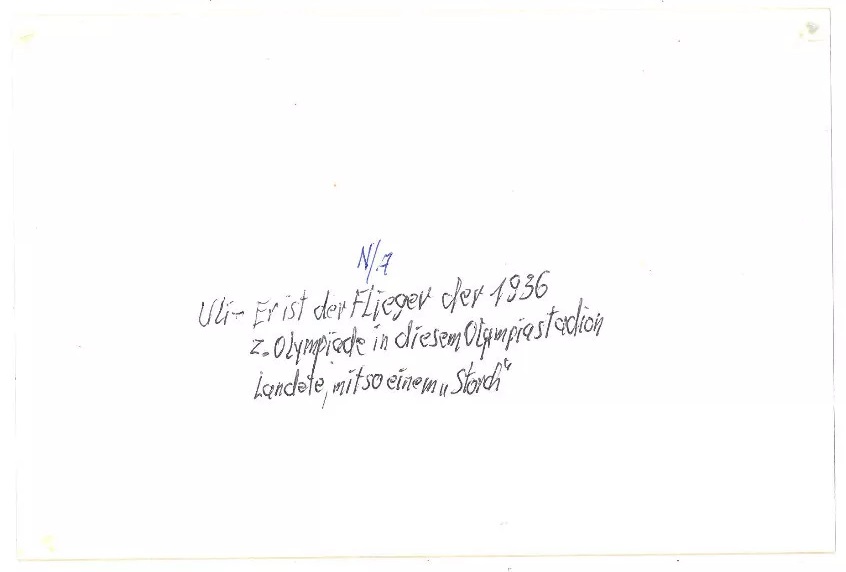 N/.7
Uli- Er ist der Flieger der 1936
z. Olympiade in diesem Olympiastadion
Landete, mit so einem „Storch“